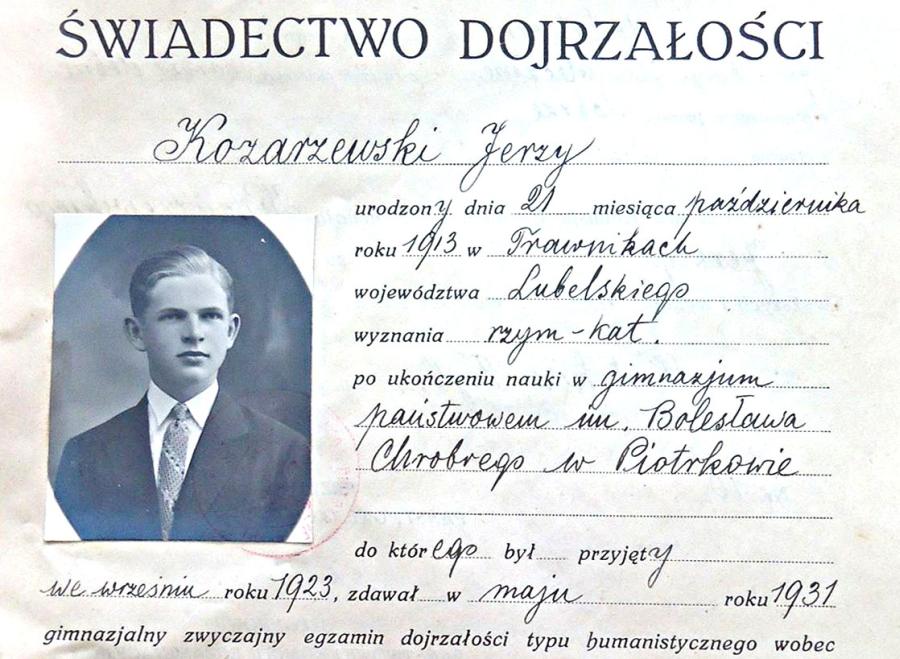 ŚWIADECTWO DOJRZAŁOŚCI
Kozarzewski Jerzy
urodzony dnia 21 miesiąca października
roku 1913 w Trawnikach
województwa Lubelskiego
wyznania rzym-kat.
po ukończeniu nauki w gimnazjum
państwowem im. Bolesława
Chrobrego w Piotrkowie
do którego był przyjęty
we wrześniu roku 1923, zdawał w maju roku 1931
gimnazjalny zwyczajny egzamin dojrzałości typu humanistycznego wobec